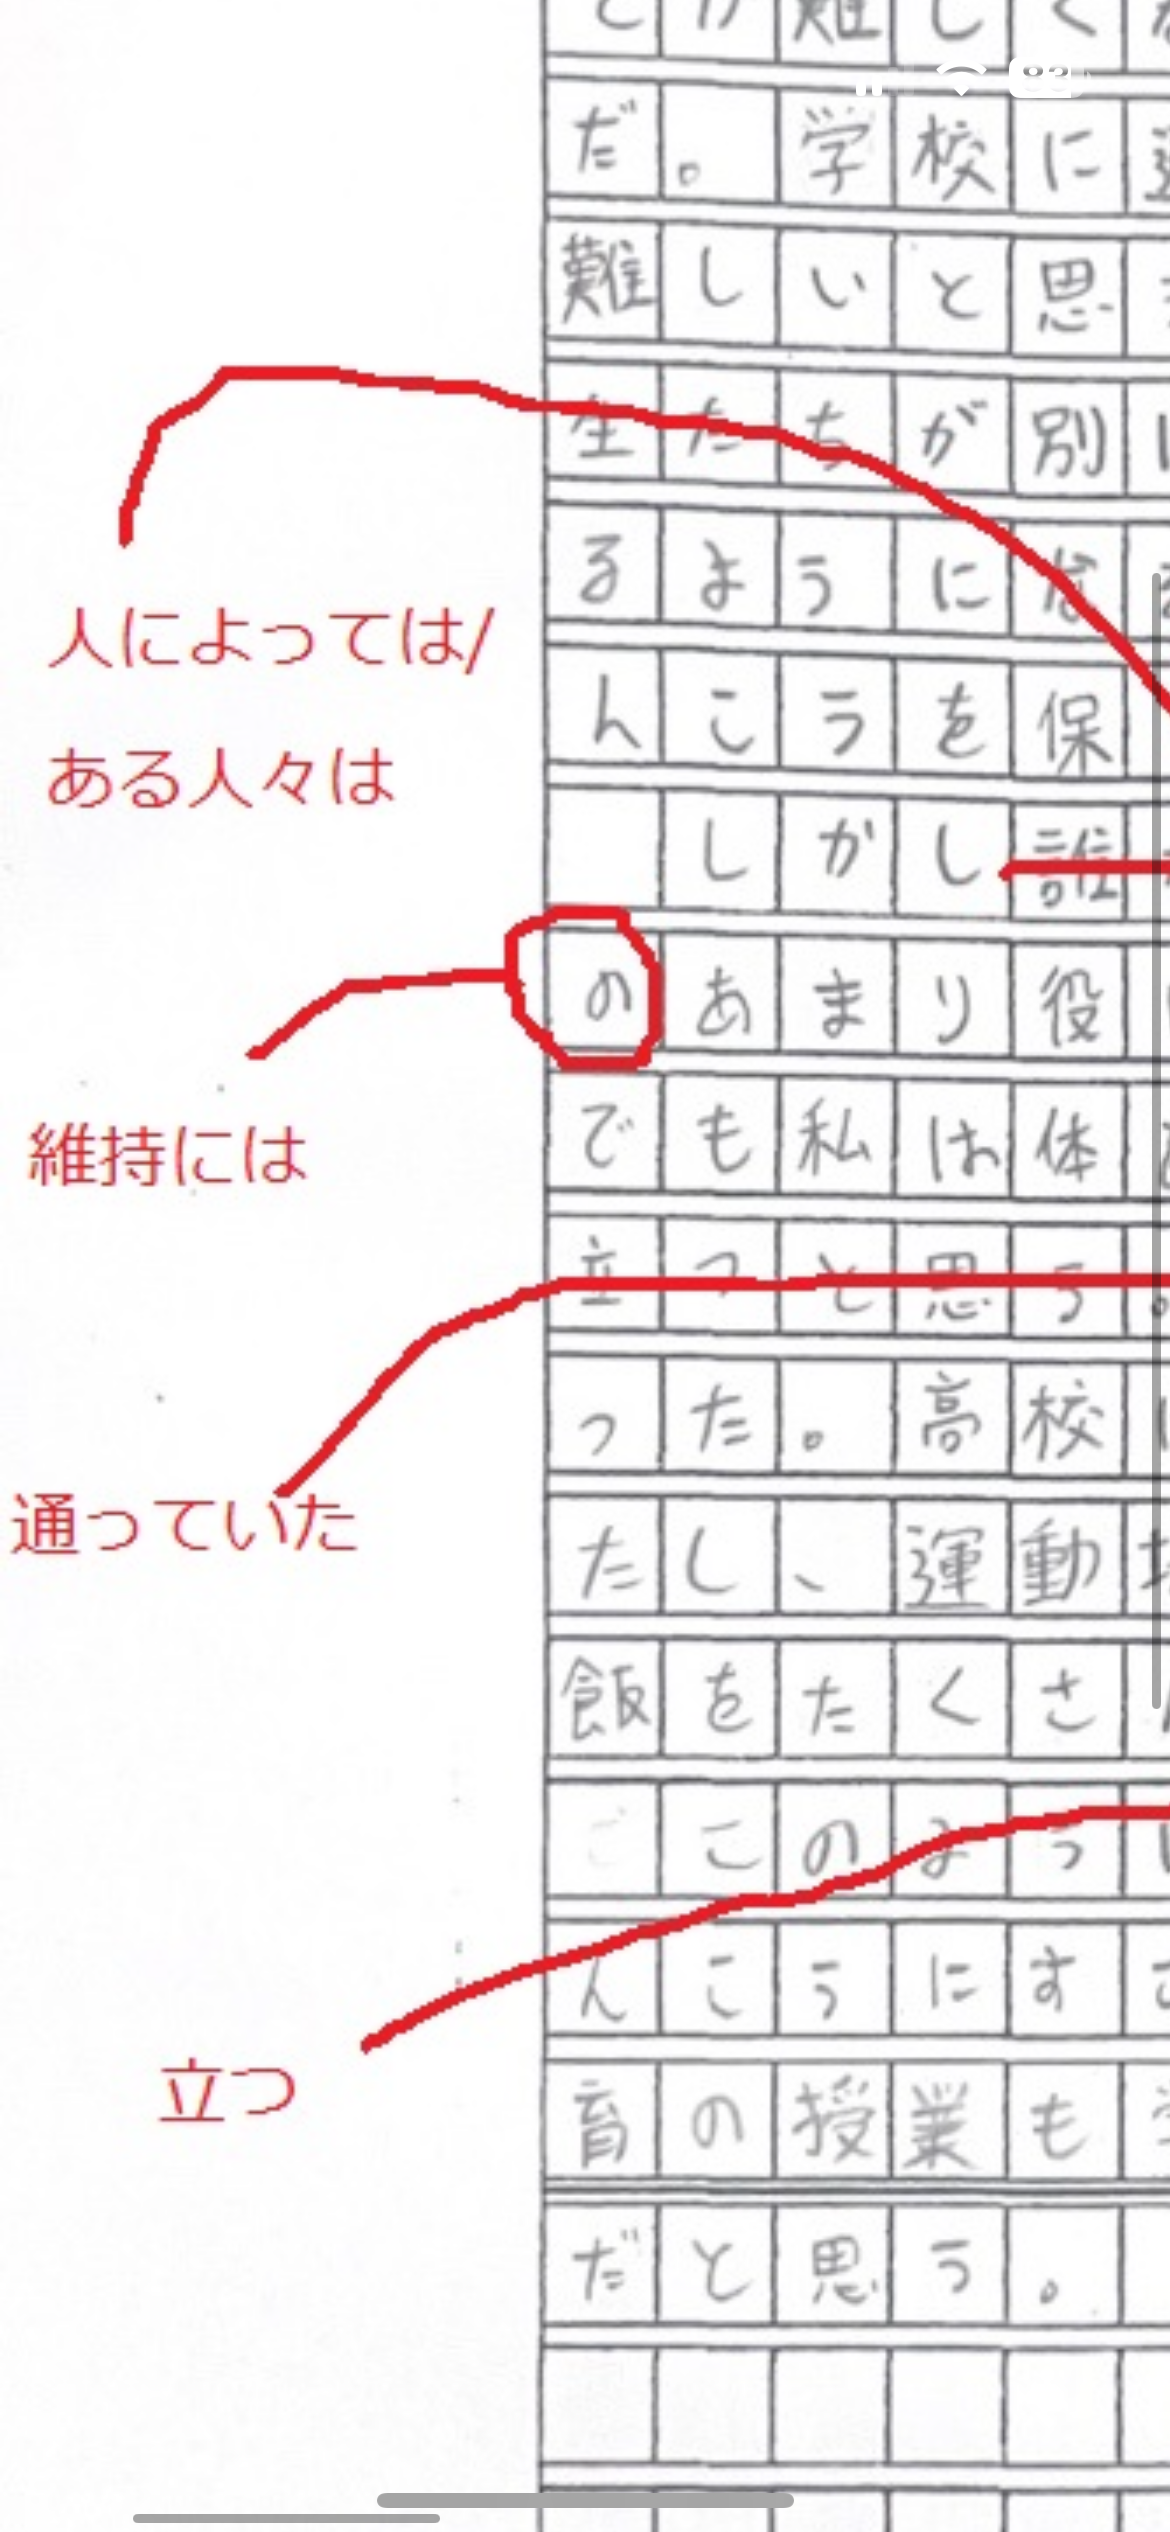 83
とか難しく
だ。学校に
難しいと思
生たちが別
るようにな
人によっては/
んこうを保
ある人々は
しかし誰
のあまり役
でも私は体
維持には
立つと思う。
った。高校
通っていた
たし、運動
飯をたくさ
このよう
んこうにす
立つ
育の授業も
だと思う。